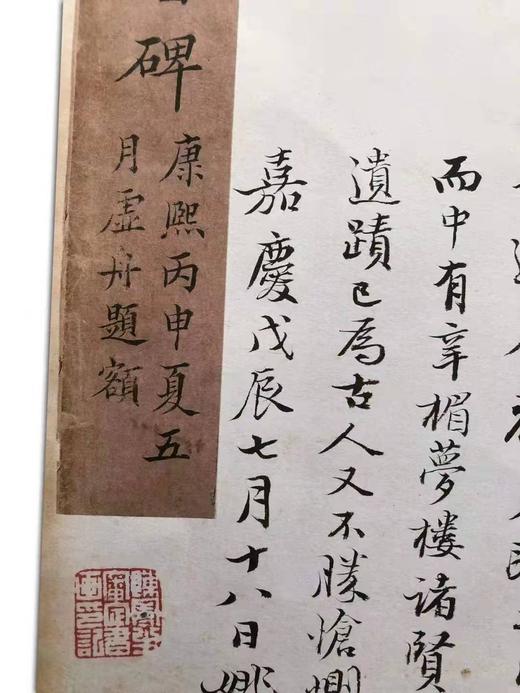 而中有辛楣夢樓諸賢
遺蹟已為古人又不勝愴惻
嘉慶戊辰七月十八日姚
碑
康熙丙申夏五
月虛舟題額
審定書
畫印記